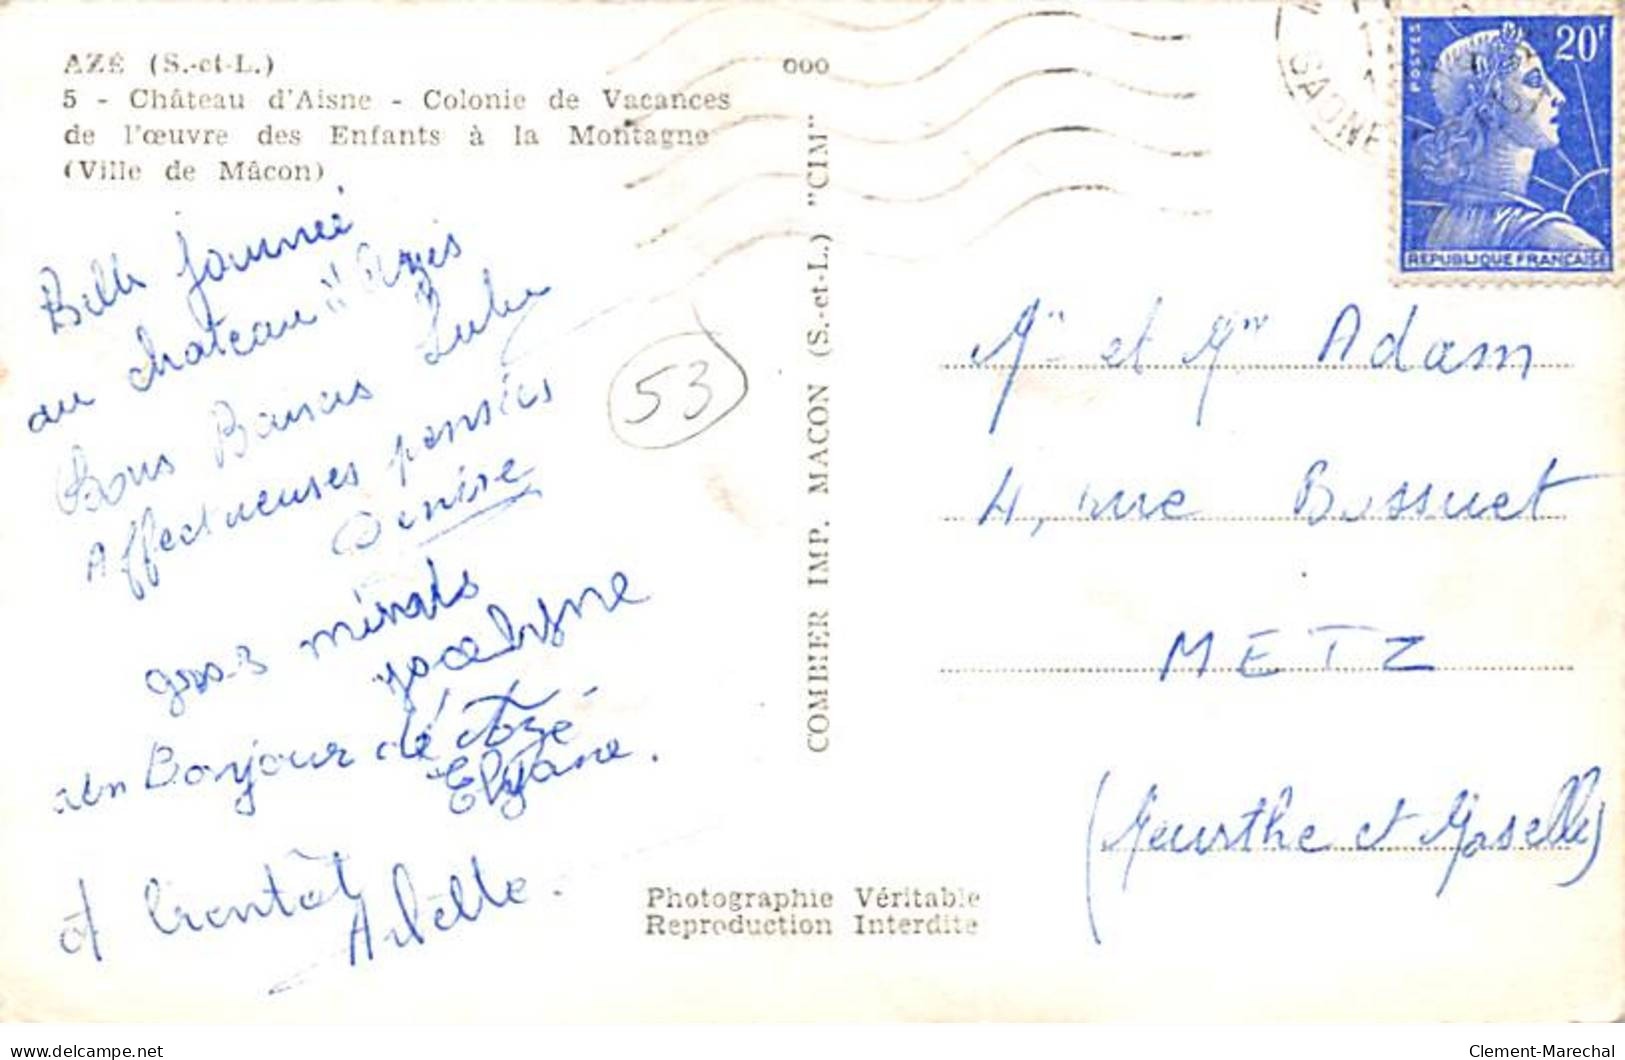 AZÉ (S.-et-L.)
5 - Château d'Aisne - Colonie de Vacances
de l'œuvre des Enfants à la Montagne
(Ville de Mâcon)
Belle journeé
au chateau
Bons Baisers Lulu
Affectueuses pensées
Denise
gros mimis
Jocelyne
Bonjour
Elyane.
A bientôt
Arlette.
53
COMBIER IMP. MACON (S.-et-L.) "CIM"
000
Photographie Véritable
Reproduction Interdite
SAONE
POSTES
20F
REPUBLIQUE FRANÇAISE
Mr et Mme Adam
4, rue Bossuet
METZ
(Meurthe et Moselle)
delcampe.net
Clement-Marechal